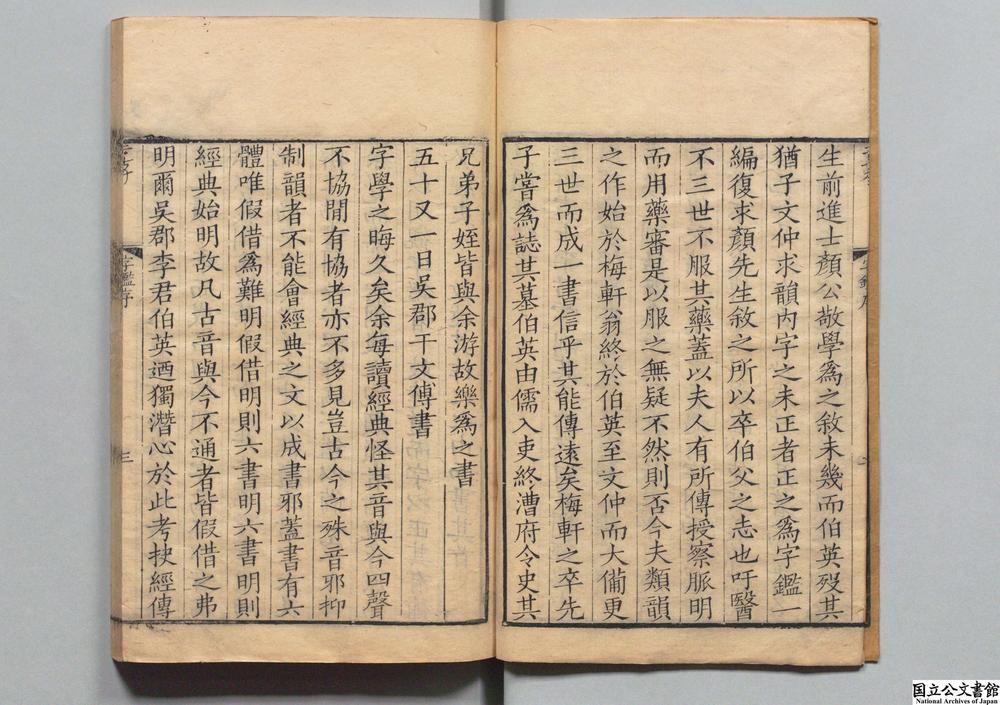 生前進士顏公敬學爲之敘未幾而伯英歿其
猶子文仲求韻內字之未正者正之爲字鑑一
編復求顏先生敘之所以卒伯父之志也吁醫
不三世不服其藥蓋以夫人有所傳授察脈明
而用藥審是以服之無疑不然則否今夫類韻
之作始於梅軒翁終於伯英至文仲而大備更
三世而成一書信乎其能傳遠矣梅軒之卒先
子嘗爲誌其墓伯英由儒入吏終漕府令史其
兄弟子姪皆與余游故樂爲之書
五十又一日吳郡干文傳書
字學之晦久矣余每讀經典怪其音與今四聲
不協閒有協者亦不多見豈古今之殊音邪抑
制韻者不能會經典之文以成書邪蓋書有六
體唯假借爲難明假借明則六書明六書明則
經典始明故凡古音與今不通者皆假借之弗
明爾吳郡李君伯英迺獨潛心於此考抉經傳
字鑑序
三
国立公文書館
National Archives of Japan